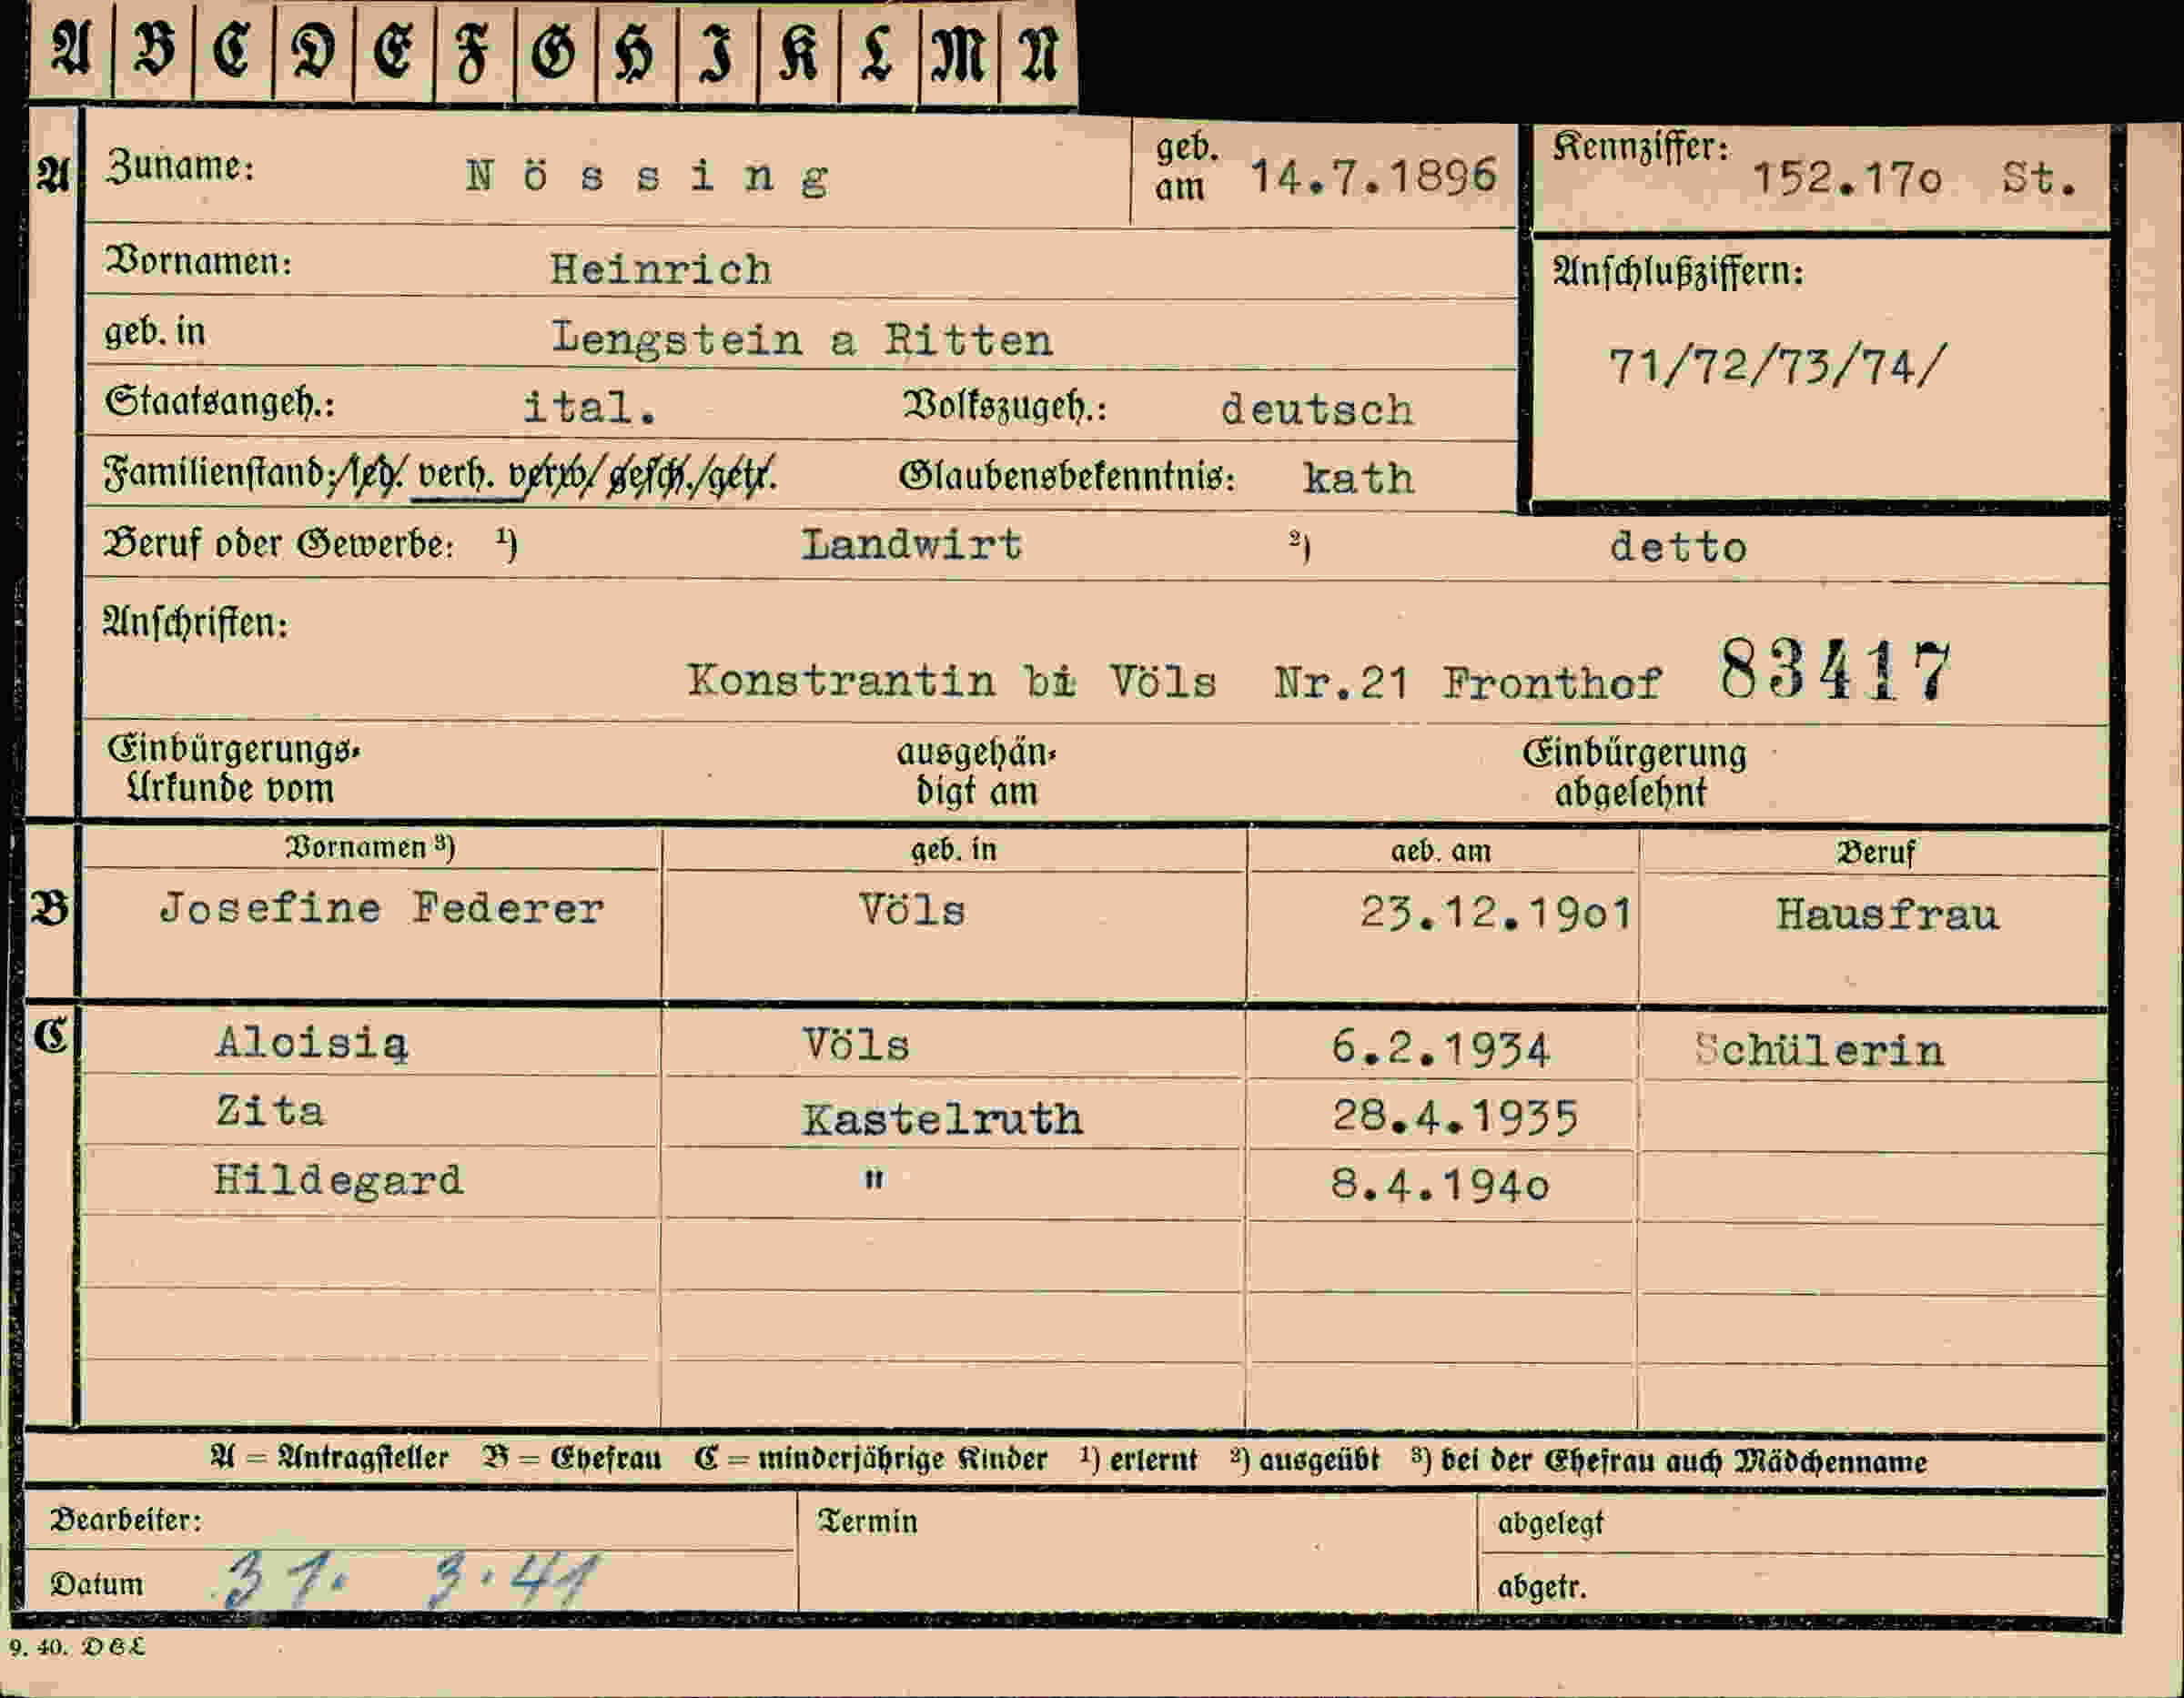 A B C D E F G H I K L M N
A Zuname: Nössing geb. am 14.7.1896 Kennziffer: 152.17o St.
Vornamen: Heinrich Anschlußziffern:
geb. in Lengstein a Ritten 71/72/73/74/
Staatsangeh.: ital. Volkszugeh.: deutsch
Familienstand: led. verh. verw. gesch. getr. Glaubensbekenntnis: kath
Beruf oder Gewerbe: ¹) Landwirt ²) detto
Anschriften:
Konstrantin bi Völs Nr.21 Fronthof 83417
Einbürgerungs- ausgehän- Einbürgerung
Urkunde vom digt am abgelehnt
Vornamen ³) geb. in geb. am Beruf
B Josefine Federer Völs 23.12.19o1 Hausfrau
C Aloisia Völs 6.2.1934 Schülerin
Zita Kastelruth 28.4.1935
Hildegard " 8.4.194o
A = Antragsteller B = Ehefrau C = minderjährige Kinder ¹) erlernt ²) ausgeübt ³) bei der Ehefrau auch Mädchenname
Bearbeiter: Termin abgelegt
Datum 31. 3.41 abgetr.
9. 40. DGL